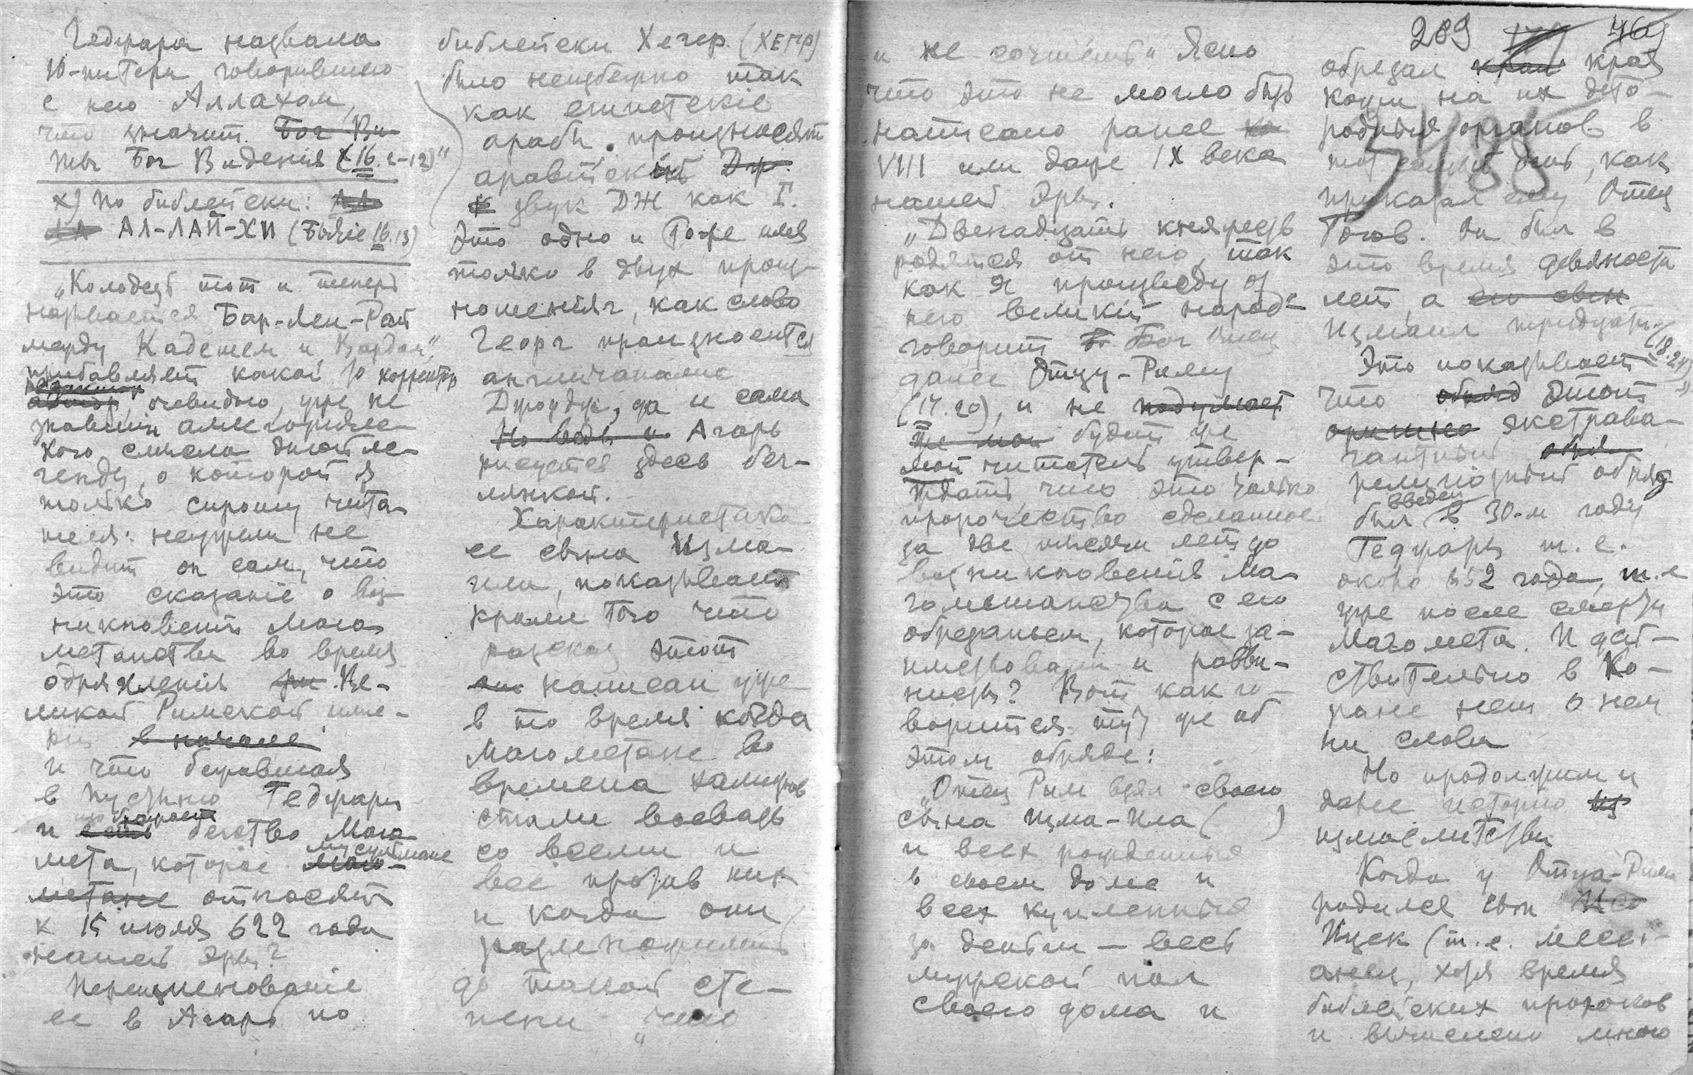 Геджара назвала
Ю-питера говорившего
с нею Аллахом,
что значит Бог Ви
ты Бог Видения (16.1-13)"
х) По библейски:
АЛ-ЛАЙ-ХИ (Бытие 16.13)
„Колодезь тот и теперь
называется Бар-Леи-Рай
между Кадешем и Бардом",
прибавляет какой то корректор
очевидно, уже не
знавший аллегориче-
кого смысла этой ле-
генды, о которой я
только спрошу чита
теля: неужели не
видит он сам, что
это сказаніе о воз-
никновении Маго
метанства во время
одряхления Ве-
ликой Римской импе-
рии в начале
и что бежавшая
в пустыню Геджара
и бегство Маго
мета, которое мусульмане
метане относят
к 15 июля 622 года
нашей эры?
Переименованіе
ее в Агарь по
библейски Хегер (ХЕГР)
было неизбежно так
как египетскіе
арабы произносят
аравійскій
звук ДЖ как Г.
Это одно и тоже имя
только в двух произ-
ношениях, как слово
Георг произносится
англичанами
Джордж, да и сама
Но ведь и Агарь
рисуется здесь бег-
лянкой.
Характеристика
ее сына Изма-
ила, показывает
кроме того что
рассказ этот
написан уже
в то время когда
магометане во
времена халифов
стали воевать
со всеми и
все против них
и когда они
размножились
до такой сте-
пени „что
и не сочтешь" Ясно
что это не могло быть
написано ранее
VIII или даже IX века
нашей эры.
„Двенадцать князей
родятся от него, так
как я произведу от
него великій народ"
говорит Бог Отец
далее Отцу-Риму
(17.20), и не подумает
же мой будет уже
мой читатель утвер-
ждать что это только
пророчество сделанное
за две тысячи лет до
возникновения Ма-
гометанства с его
обрезаньем, которое за-
имствовали и равви-
нисты? Вот как го
ворится тут же об
этом обряде:
„Отец Рим взял своего
сына Изма-Ила ( )
и всех рожденных
в своем доме и
всех купленных
за деньги — весь
мужской пол
своего дома и
289 469
обрезал край
кожи на их дето-
родных органов в
тот самый день, как
приказал ему Отец
Богов. Он был в
это время девяноста
лет, а его сын
Измаил тридцати.
(18.24)"
Это показывает
что обряд этот
экстрава-
гантный
религіозный обряд
был введен в 30-м году
Геджары т. е.
около 652 года, т.е
уже после смерти
Магомета. И дей-
ствительно в Ко-
ране нет о нем
ни слова
Но продолжим и
далее историю
измаелитства
Когда у Отца-Рима
родился сын
Исек (т. е. месси-
анец, хотя время
библейских пророков
и вычислено мною